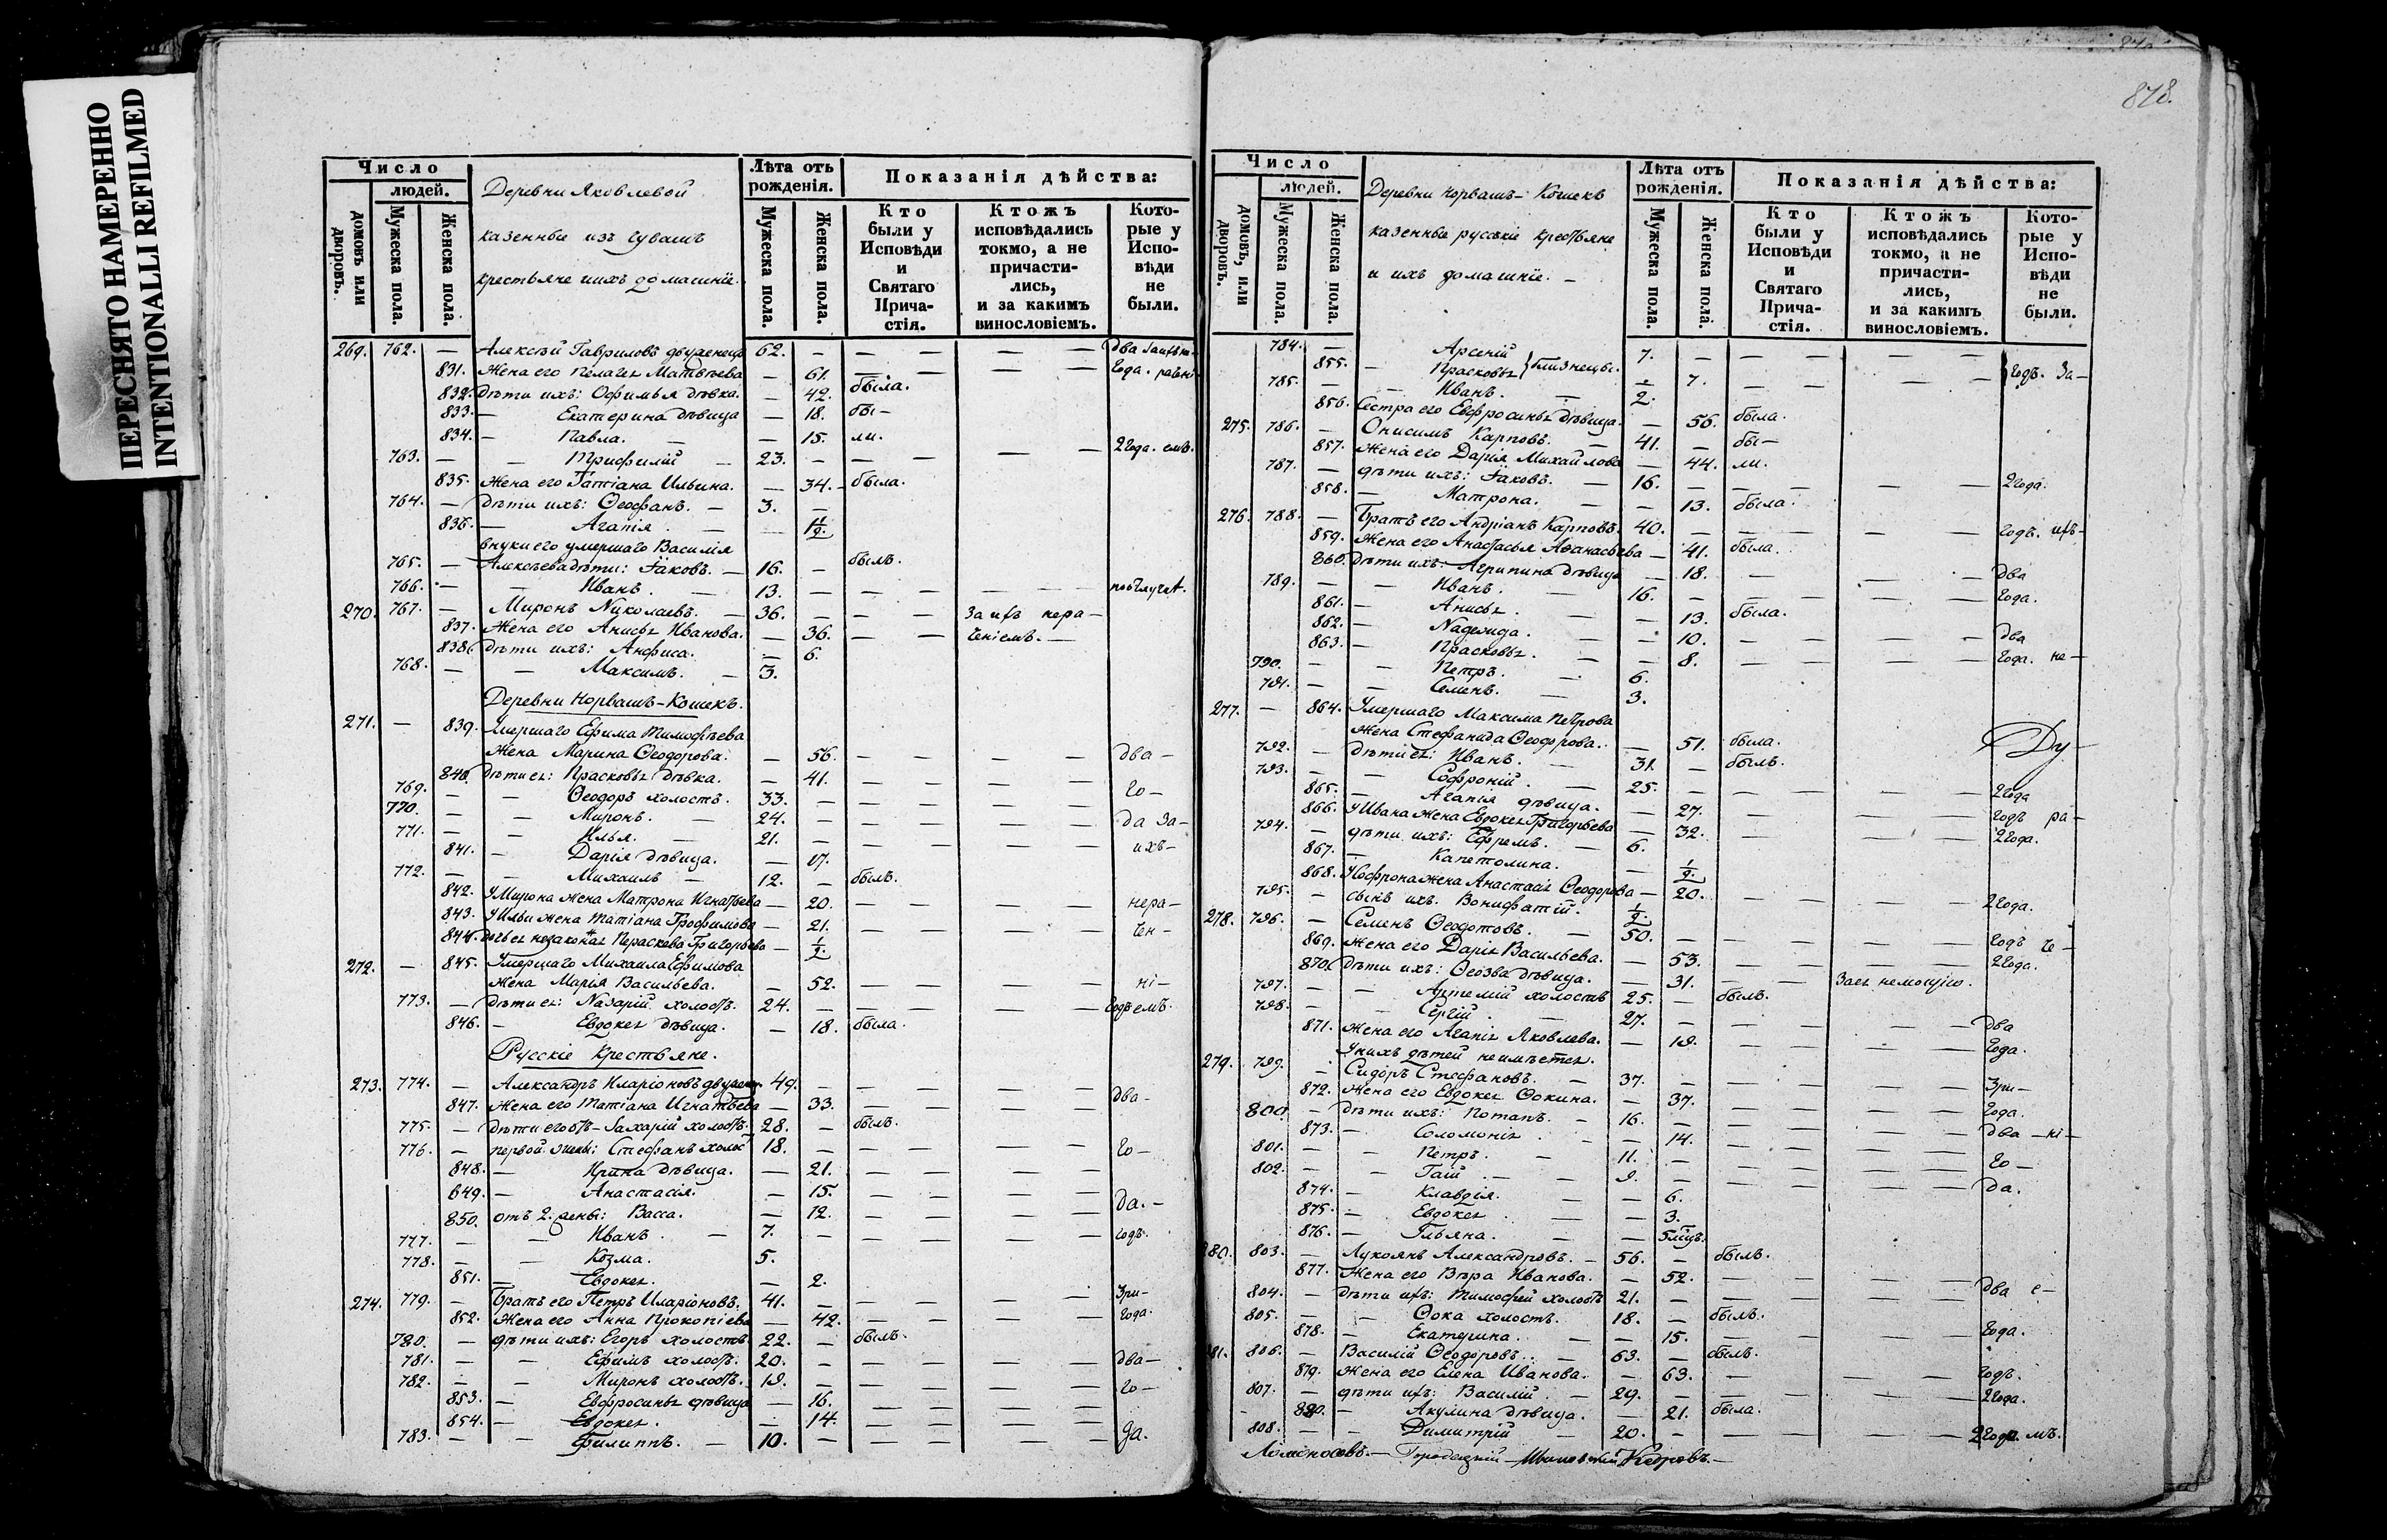 ПЕРЕСНЯТО НАМЕРЕННО
INTENTIONALLI REFILMED
878.
Число
людей.
домовъ или дворовъ.
Мужеска пола.
Женска пола.
Деревни Яковлевой
казенные изъ Чувашъ
крестьяне и ихъ домашніе.
Лѣта отъ рожденія.
Мужеска пола.
Женска пола.
Показанія дѣйства:
Кто были у Исповѣди и Святаго Причастія.
Ктожъ исповѣдались токмо, а не причастились, и за какимъ винословіемъ.
Которые у Исповѣди не были.
269. 762. — Алексѣй Гавриловъ 62. — — — — Два
831. Жена его Пелагея Матвѣева — 61. — — — — Года.
832. Дѣти ихъ: Офимья дѣвка. — 42. была.
833. — Екатерина дѣвица — 18. бы-
834. — Павла. — — 15. ли.
763. — — Трифилій — 23. — — — — — 2 года.
835. Жена его Татіана Ильина. — 34. — была.
764. — Дѣти ихъ: Ѳеофанъ. — 3. —
836. — Агапія. — — 1 1/2.
внуки его умершаго Василія
765. — Алексѣева дѣти: Іаковъ. — 16. — былъ.
766. — — Иванъ. — 13. — — — — —
270. 767. — Миронъ Николаевъ. — 36. — — — За ихъ нера-
837. Жена его Анисья Иванова. — 36. — — ченіемъ. —
838. Дѣти ихъ: Анфиса. — 6.
768. — — Максимъ. — 3.
Деревни Норвашъ-Кошекъ.
271. — 839. Умершаго Ефима Тимофѣева
жена Марина Ѳеодорова. — 56. — — — — два —
840. Дѣти ея: Прасковья дѣвка. — 41. — — — —
769. — — Ѳеодоръ холостъ. 33. — — — — — го —
770. — — Миронъ. — 24. — — — — — да за —
771. — — Илья. — 21. — — — — — ихъ —
841. — Дарія дѣвица. — 17. — — — —
772. — — Михаилъ — 12. — былъ.
842. У Мирона жена Матрона Игнатьева — 20. — — — — нера —
843. У Ильи жена Татіана Трофимова — 21. — — — — чен —
844. дочь ея Параскева Григорьева — 1/2.
272. — 845. Умершаго Михаила Ефимова
жена Марія Васильева. — 52. — — — — ні —
773. — Дѣти ея: Назарій холостъ. 24. — — — — — Годъ емъ.
846. — Евдокея дѣвица. — 18. была.
Русскіе Крестьяне.
273. 774. — Александръ Иларіоновъ 49. — — — — —
847. Жена его Татіана Игнатьева — 33. — — — — два —
775. — Дѣти его отъ — Захарій холостъ. 28. — былъ.
776. — первой жены: Стефанъ холост 18. — — — — — го —
848. — Ирина дѣвица. — 21. — — — —
849. — Анастасія. — 15. — — — — да. —
850. отъ 2. жены: Васса. — 12. — — — —
777. — — Иванъ. — 7. — — — — — годъ.
778. — — Козма. 5.
851. — Евдокея. — 2.
274. 779. — Братъ его Петръ Иларіоновъ. 41. — — — — — Три —
852. Жена его Анна Прокопіева — 42. — — — — года.
780. — Дѣти ихъ: Егоръ холостъ 22. — былъ.
781. — — Ефимъ холостъ. 20. — — — — — два —
782. — — Миронъ холостъ. 19. — — — — — го —
853. — Евфросинья дѣвица — 16. — — — —
854. — Евдокея. — 14. — — — —
783. — — Филиппъ. — 10. — — — — — да.
Число
людей.
домовъ, или дворовъ.
Мужеска пола.
Женска пола.
Деревни Норвашъ-Кошекъ
казенные русскіе крестьяне
и ихъ домашніе. —
Лѣта отъ рожденія.
Мужеска пола.
Женска пола.
Показанія дѣйства:
Кто были у Исповѣди и Святаго Причастія.
Ктожъ исповѣдались токмо, а не причастились, и за какимъ винословіемъ.
Которые у Исповѣди не были.
784. — Арсеній } близнецы. 7. — — — —
855. — Прасковья — 7. — — — — Годъ. За —
785. — — Иванъ. — 2.
856. Сестра его Евфросинья дѣвица. — 56. была.
275. 786. — Онисимъ Карповъ. — 41. — бы —
857. Жена его Дарія Михайлова — 44. ли.
787. — Дѣти ихъ: Іаковъ. — 16. — — — — — 2 года.
858. — Матрона. — — 13. была.
276. 788. — Братъ его Андріанъ Карповъ. 40. — — — — — Годъ. ихъ —
859. Жена его Анастасья Аѳанасьева — 41. была.
860. Дѣти ихъ: Агрипина дѣвица — 18. — — — два
789. — — Иванъ. — 16. — — — — — года.
861. — Анисья. — — 13. была.
862. — Надежда. — — 10. — — — — два
863. — Прасковья. — — 8. — — — — года. не —
790. — — Петръ. — 6.
791. — — Семенъ. — 3.
277. — 864. Умершаго Максима Петрова
жена Стефанида Ѳеодорова. — 51. была.
792. — Дѣти ея: Иванъ. — 31. — былъ.
793. — — Софроній. — 25. — — — — — 2 года
865. — Агапія дѣвица. — 27. — — — — годъ ра —
866. У Ивана жена Евдокея Григорьева — 32. — — — — 2 года.
794. — Дѣти ихъ: Ефремъ. — 6.
867. — Капетолина. — 1/2.
868. У Софрона жена Анастасія Ѳеодорова — 20. — — — — 2 года.
795. — сынъ ихъ. Вонифатій. — 1/2.
278. 796. — Семенъ Ѳеодотовъ. — 50. — — — — — Годъ че —
869. Жена его Дарія Васильева. — 53. — — — — 2 года.
870. Дѣти ихъ: дѣвица. — 31. —
797. — — Артемій холостъ 25. — былъ.
798. — — Сергій. — 27. — — — — — два
871. Жена его Агапія Яковлева. — 19. — — — — года.
У нихъ дѣтей не имѣется.
279. 799. — Сидоръ Стефановъ. — 37. — — — — — Три —
872. Жена его Евдокея Ѳокина. — 37. — — — — года.
800. — Дѣти ихъ: Потапъ. — 16. — — — — — два — ні —
873. — Соломонія. — — 14. — — — —
801. — — Петръ. — 11. — — — — — го —
802. — — Гаій. — 9. — — — — — да.
874. — Клавдія. — — 6.
875. — Евдокея. — — 3.
876. — Ульяна. — — 5 мѣц.
280. 803. — Лукоянъ Александровъ. — 56. — былъ.
877. Жена его Вѣра Иванова. — 52. — — — — два е —
804. — Дѣти ихъ: Тимофей холостъ 21. — — — —
805. — — Ѳока холостъ. — 18. — былъ.
878. — Екатерина. — — 15. — — — — года.
281. 806. — Василій Ѳеодоровъ. — 63. — былъ.
879. Жена его Елена Иванова. — 63. — — — — Годъ.
807. — Дѣти ихъ: Василій. — 29. — — — — — 2 года.
880. — Акулина дѣвица. — 21. была.
808. — — Димитрій — 20. — — — — — 2 года. мъ.
Ломоносовъ. — Кедровъ. —